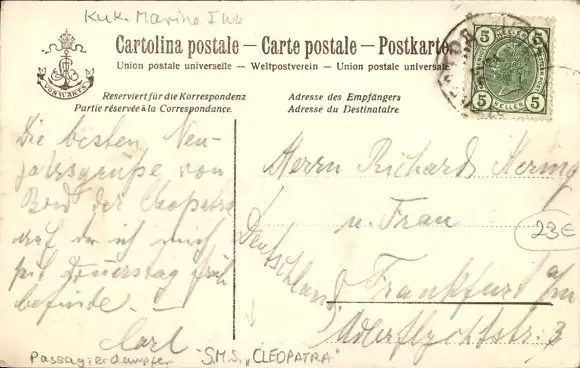 KuK. Marine I WK
Cartolina postale – Carte postale – Postkarte
Union postale universelle – Weltpostverein – Union postale universale
VORWÄRTS
5 HELLER 5
5 HELLER 5
Reserviert für die Korrespondenz
Partie réservée à la Correspondance.
Adresse des Empfängers
Adresse du Destinataire.
Die besten Neu-
jahrsgrüße von
Bord der Cleopatra
auf der ich mich
seit Donnerstag früh
befinde. –
Carl
Herrn Richard Hering
u. Frau
23€
Deutschland!
Frankfurt a/m
Adlerflychtstr. 3
Passagierdampfer
S.M.S. „CLEOPATRA"